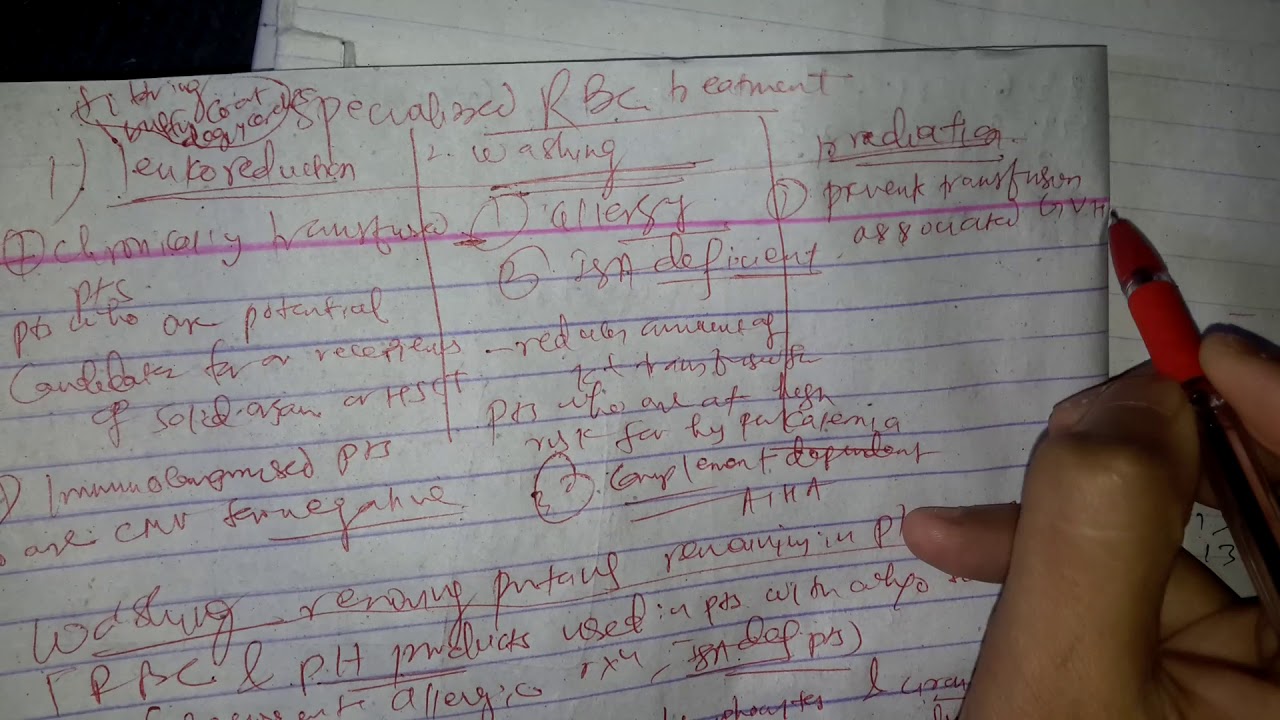 Specialized RBC treatment
1) leukoreduction
① chronically transfused
pts
pts who are potential
Candidates for or recepiens
of solid organ or HSCT
Immunocompromised pts
are CMV seronegative
2. Washing
① allergy
② IgA deficient
- reduces amount of
K+ transfusion
pts who are at high
risk for hyperkalemia
Complement-dependent
AIHA
Irradiation
① prevent transfusion
associated GVH
Washing removing proteins remaining in
[RBC & plt products used in pts with
allergic rxn, IgA def pts)
&
13